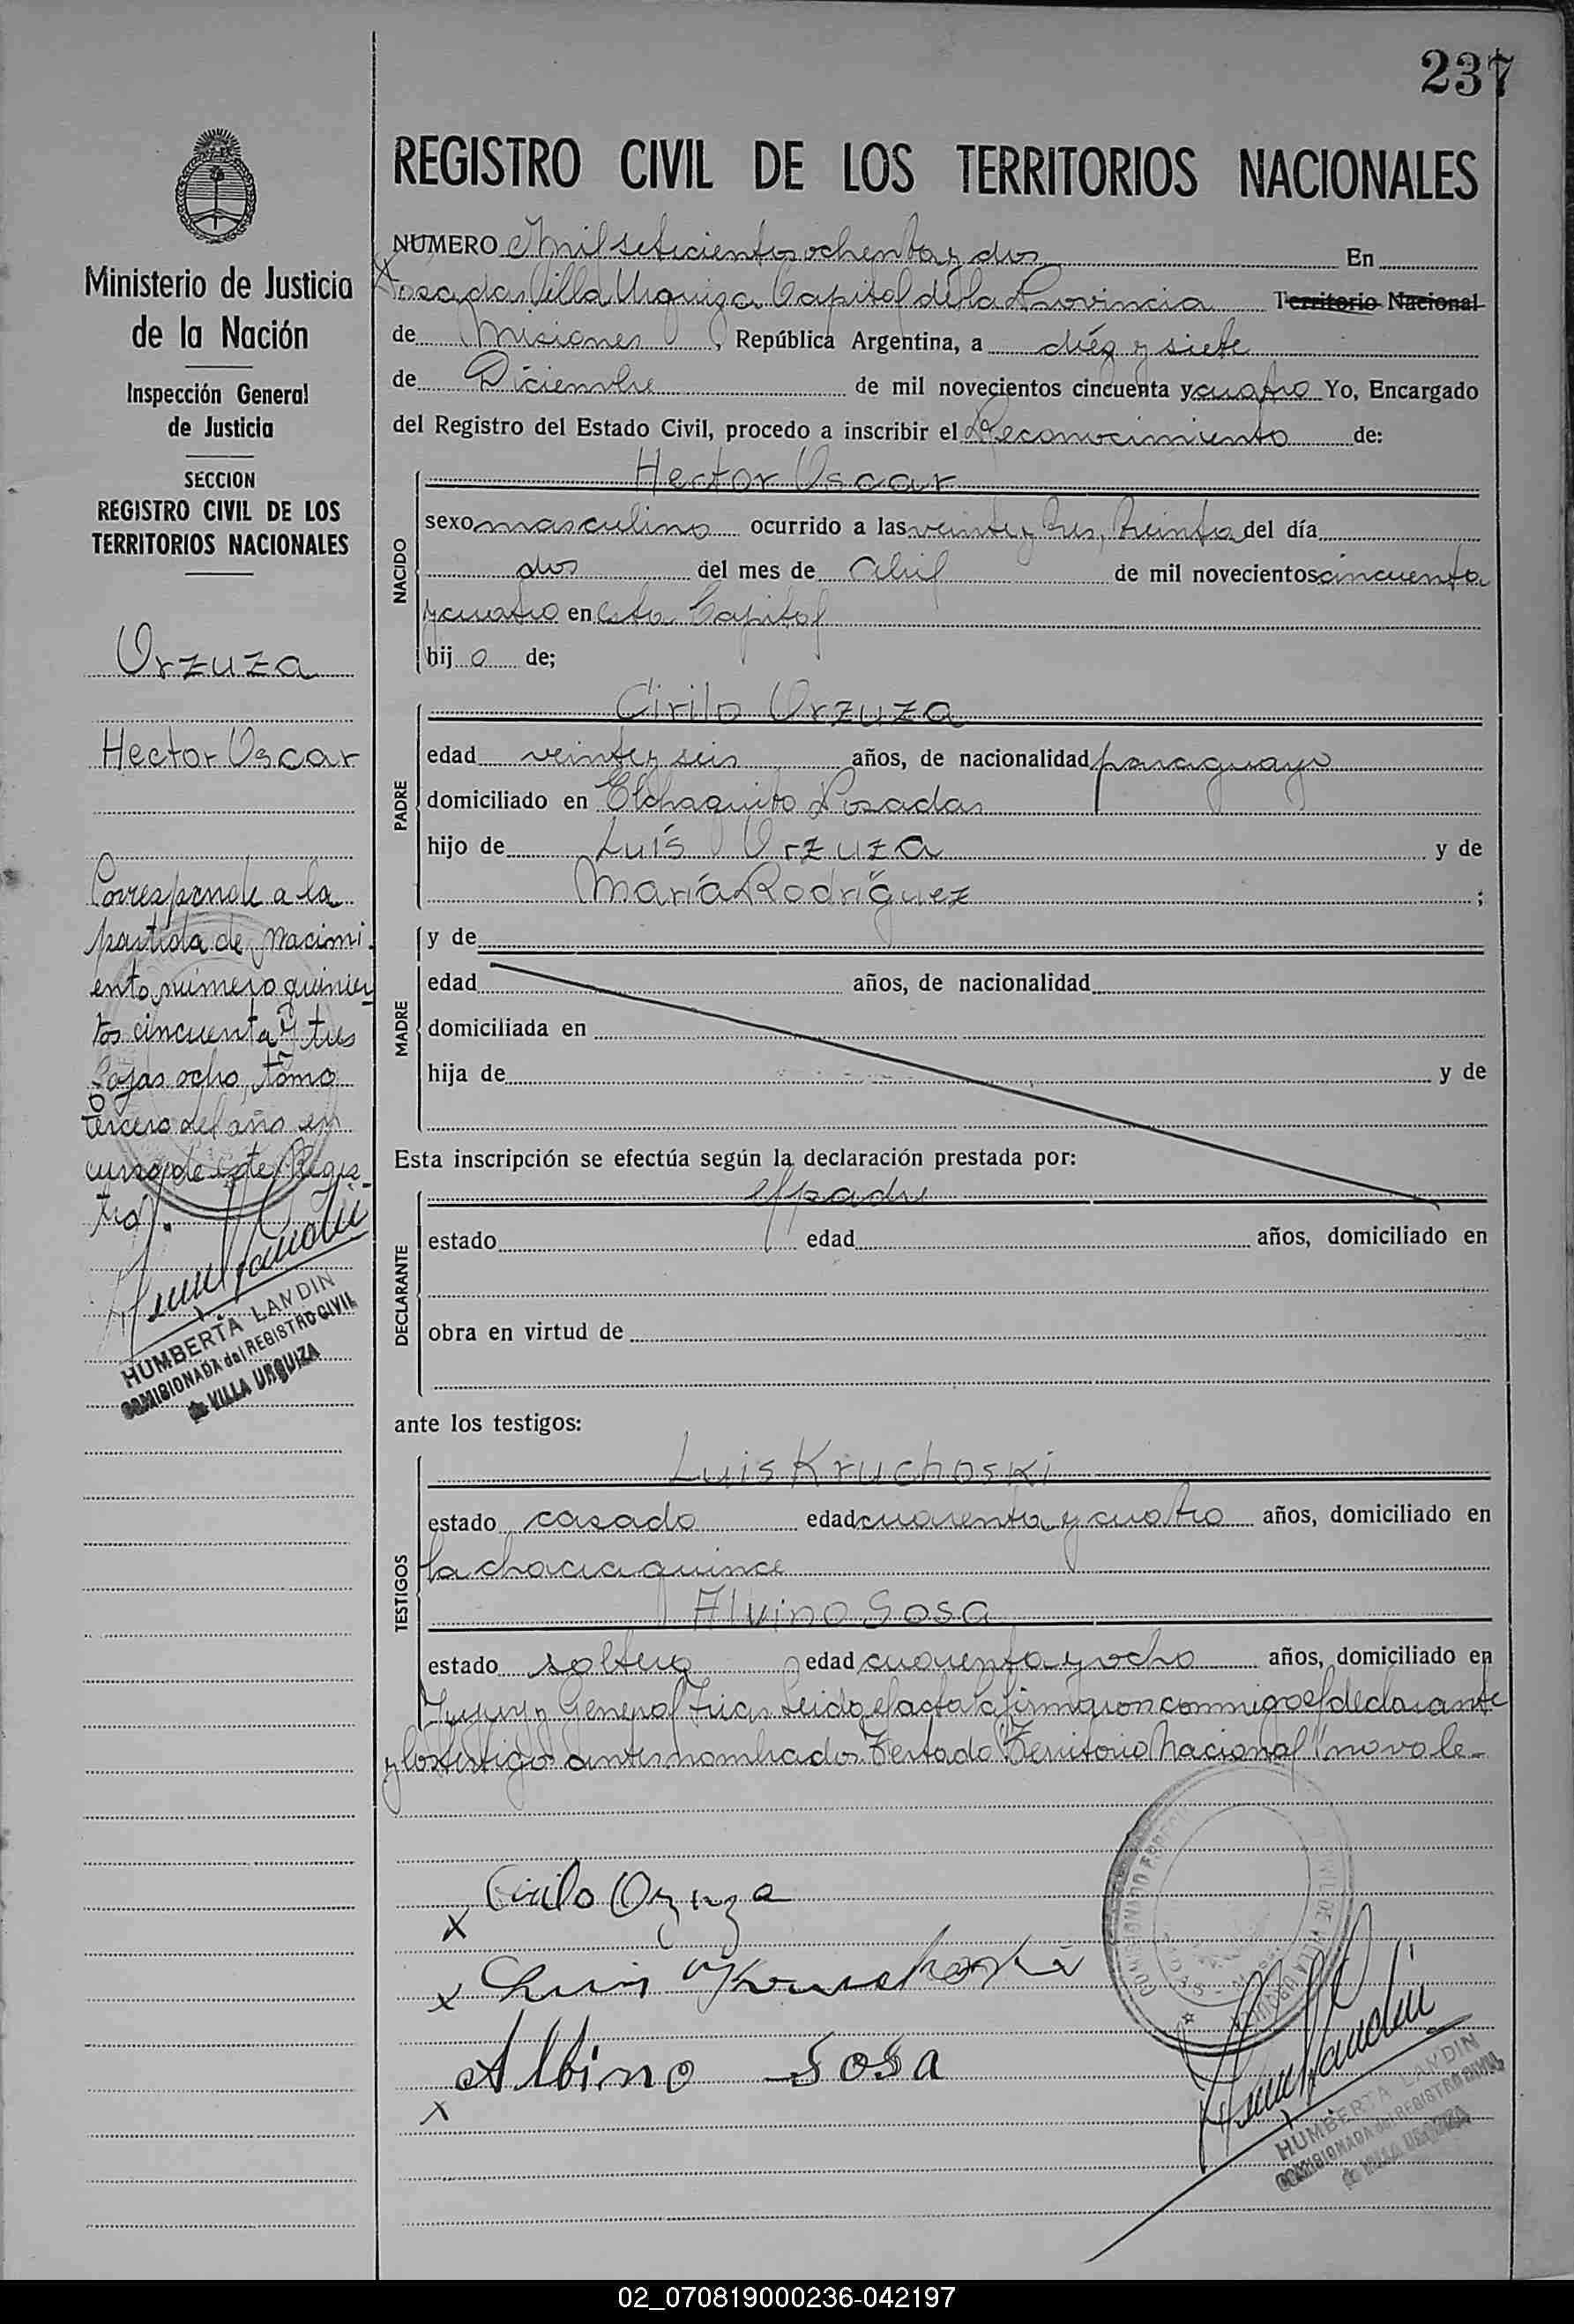 237
REGISTRO CIVIL DE LOS TERRITORIOS NACIONALES
Ministerio de Justicia
de la Nación
Inspección General
de Justicia
SECCION
REGISTRO CIVIL DE LOS
TERRITORIOS NACIONALES
Orzuza
Hector Oscar
Corresponde a la
partida de nacimi-
ento número quinien
tos cincuenta y tres
fojas ocho, tomo
tercero del año en
curso de este Regis-
tro).
HUMBERTA LANDIN
COMISIONADA del REGISTRO CIVIL
de VILLA URQUIZA
NUMERO Mil setecientos ochenta y dos En
Posadas Villa Urquiza Capital de la Provincia Territorio Nacional
de Misiones, República Argentina, a diéz y siete
de Diciembre de mil novecientos cincuenta y cuatro Yo, Encargado
del Registro del Estado Civil, procedo a inscribir el Reconocimiento de:
NACIDO
Hector Oscar
sexo masculino ocurrido a las veinte y tres, treinta del día
dos del mes de Abril de mil novecientos cincuenta
y cuatro en esta Capital
hijo de;
PADRE
Cirilo Orzuza
edad veinte y seis años, de nacionalidad paraguayo
domiciliado en El chaquito Posadas
hijo de Luís Orzuza y de
María Rodríguez ;
MADRE
y de
edad años, de nacionalidad
domiciliada en
hija de y de
Esta inscripción se efectúa según la declaración prestada por:
DECLARANTE
el padre
estado edad años, domiciliado en
obra en virtud de
ante los testigos:
TESTIGOS
Luis Kruchoski
estado casado edad cuarenta y cuatro años, domiciliado en
la chacra quince
Alvino Sosa
estado soltero edad cuarenta y ocho años, domiciliado en
Jujuy y General Frias Leida el acta la firmaron conmigo el declarante
y los testigos antes nombrados. Testado "Territorio Nacional" no vale-
x Cirilo Orzuza
x Luis Kruchoski
x Albino Sosa
HUMBERTA LANDIN
COMISIONADA del REGISTRO CIVIL
de VILLA URQUIZA
02_070819000236-042197